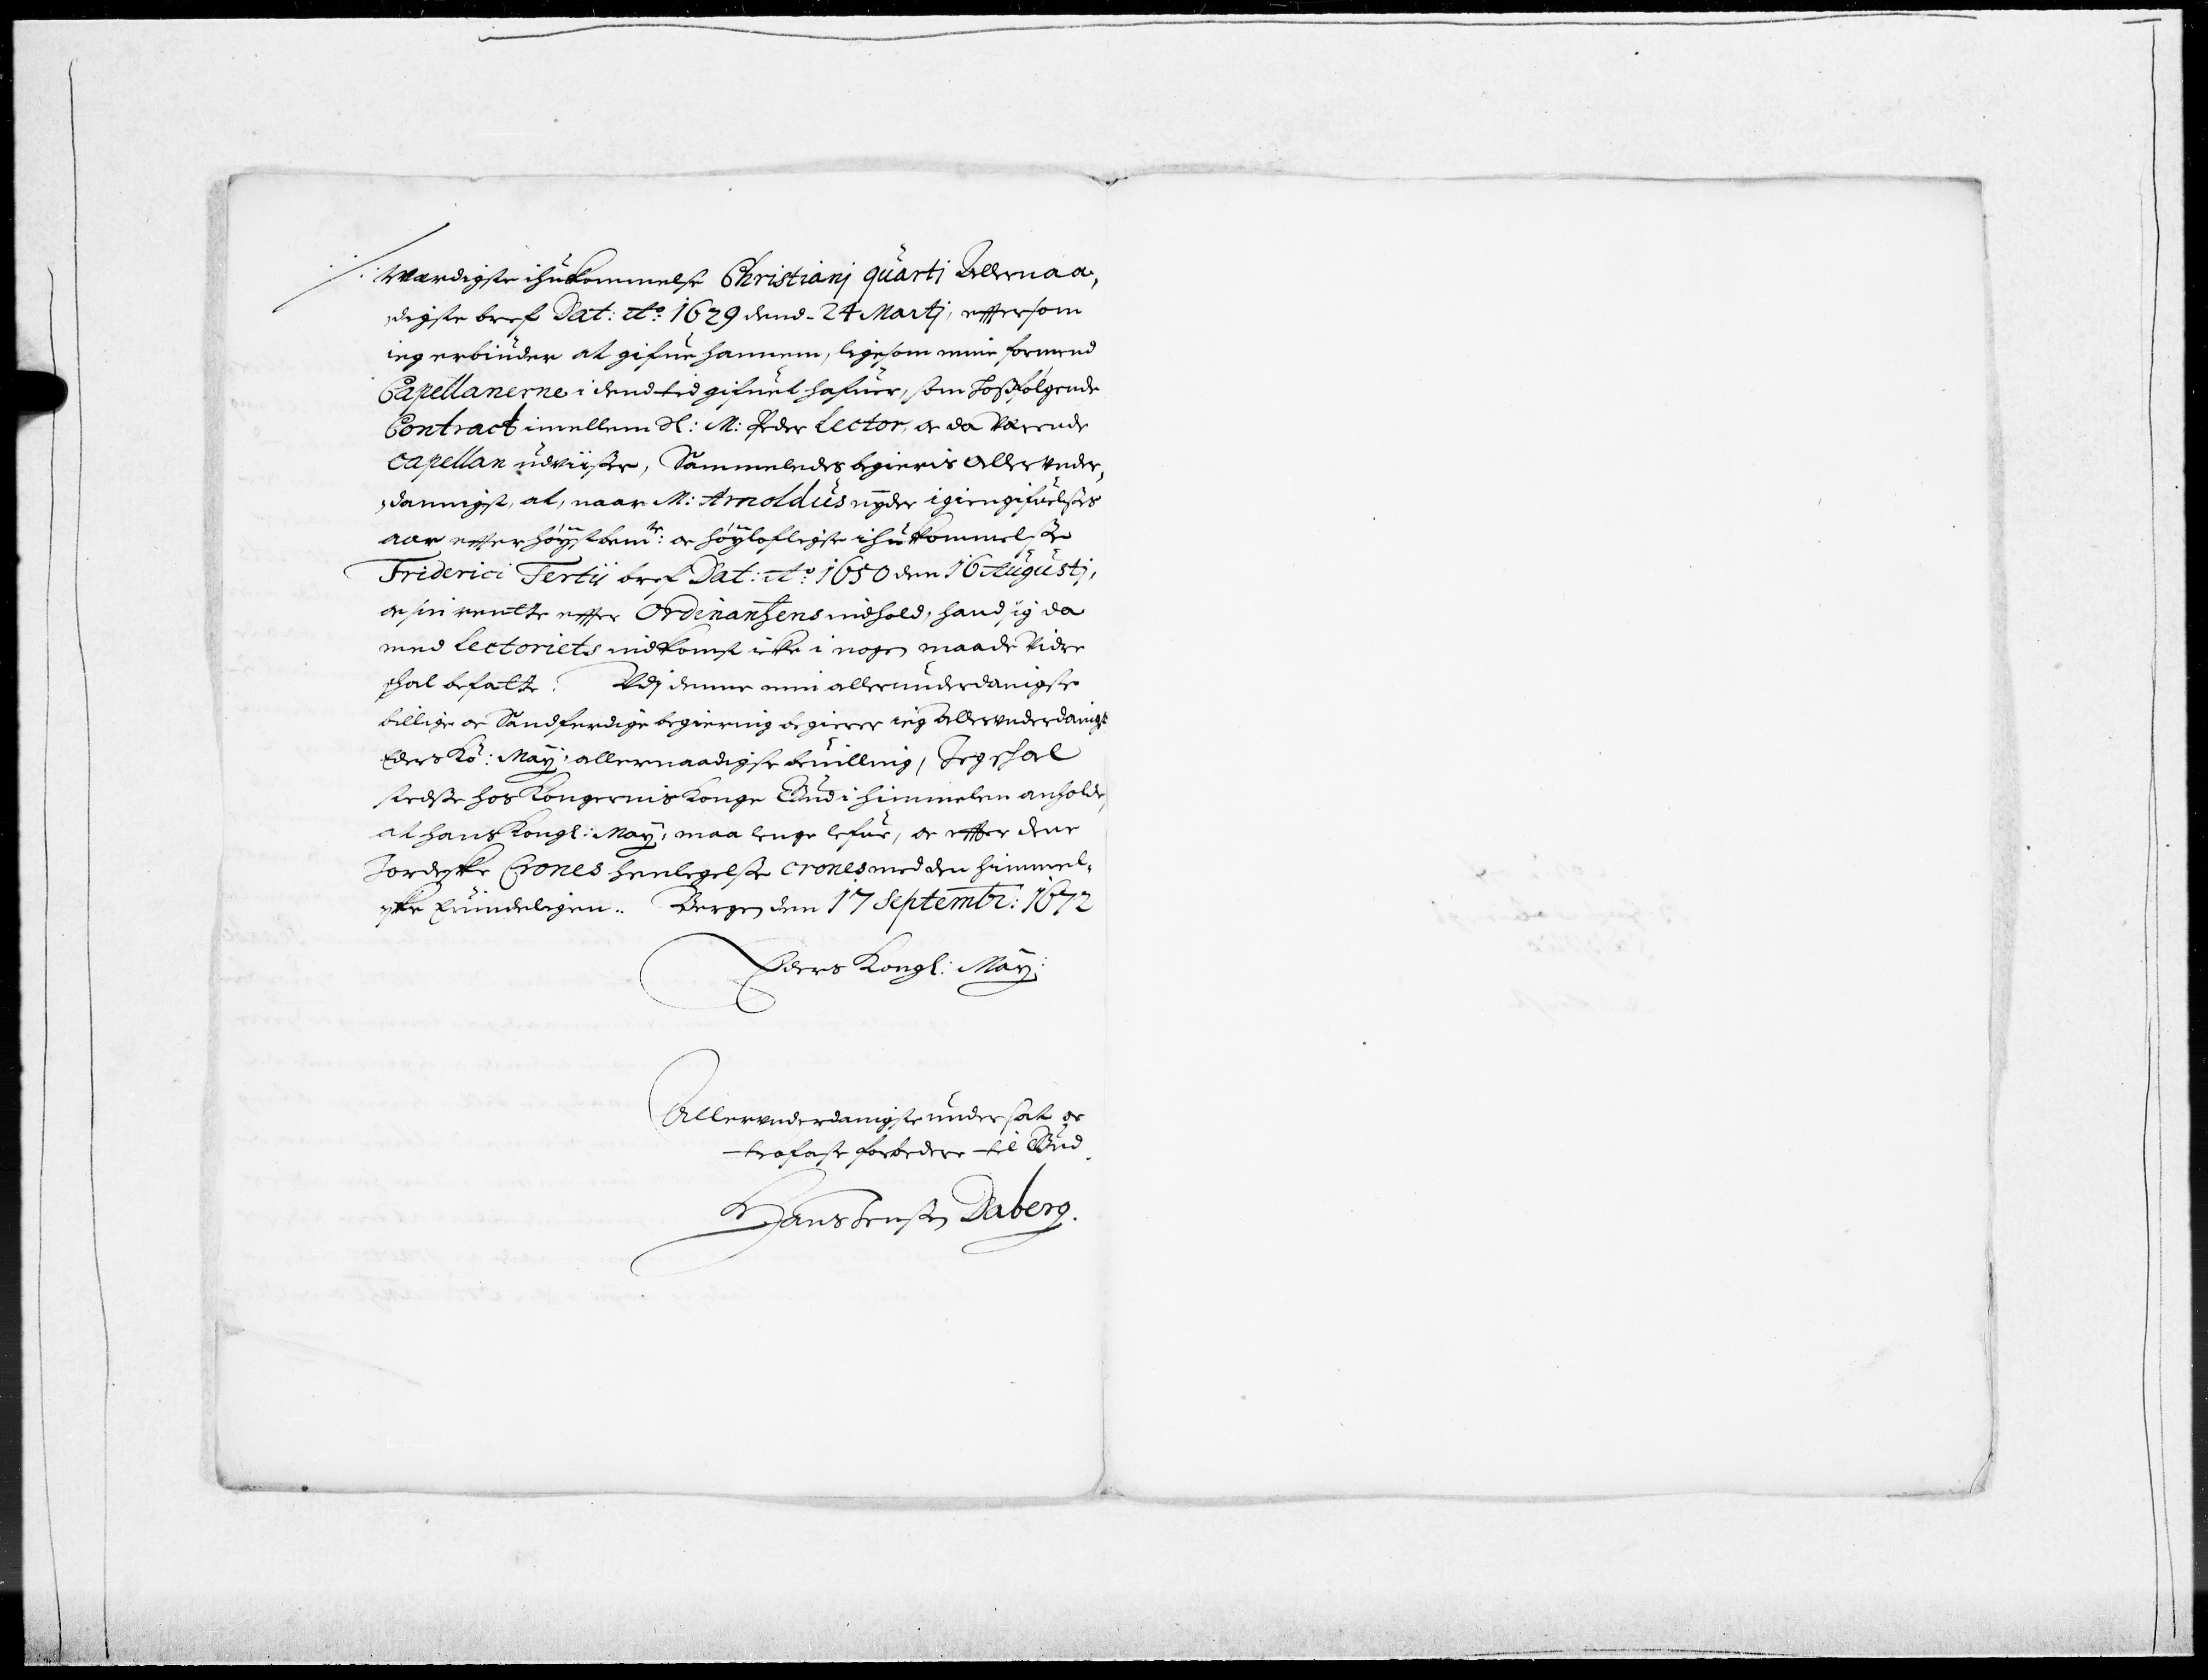 Værdigste ihukommelse Christianj quarti Allernaa,
,digste bref Dat: Ao: 1629 dend 24 Martj, effersom
ieg erbiuder at gifue hannem, ligesom mine formend
Capellanerne i dend tid gifuet hafuer, som hosfølgende
Contract imellem Sl: M: Peder Lector, oc da Værende
Capellan udviiser, Sammeledes begieris Allervnder,
,dannigst, at, naar M: Arnoldus nyder igiengifuelsses
aar effter høystbemte: oc høylofligste ihukommelsse
Friderici Tertii bref Dat: Ao: 1650 den 16 Augustj,
oc sin rentte effter Ordinanhens indhold, hand sig da
med Lectoriets indkomst icke i nogen maade Vidre
skal befatte. Udj denne min allerunderdanigste
billige oc Sandferdige begiering begierer ieg Allervnderdanigst
Eders Ko: May: allernaadigste beuilling, Jeg skal
stedsse hos Kongernis Konge Gud i himmelen anholde,
at hans Kongl: May: maa lenge lefue, oc effter den
Jordeske Crones henlegelsse Crones med den himmel-
ske Euindeligen. Bergen den 17 Septembr: 1672
Eders Kongl: May:
Allervnderdanigste undersat oc
trofaste forbedere til Gud
Hans Daberg.